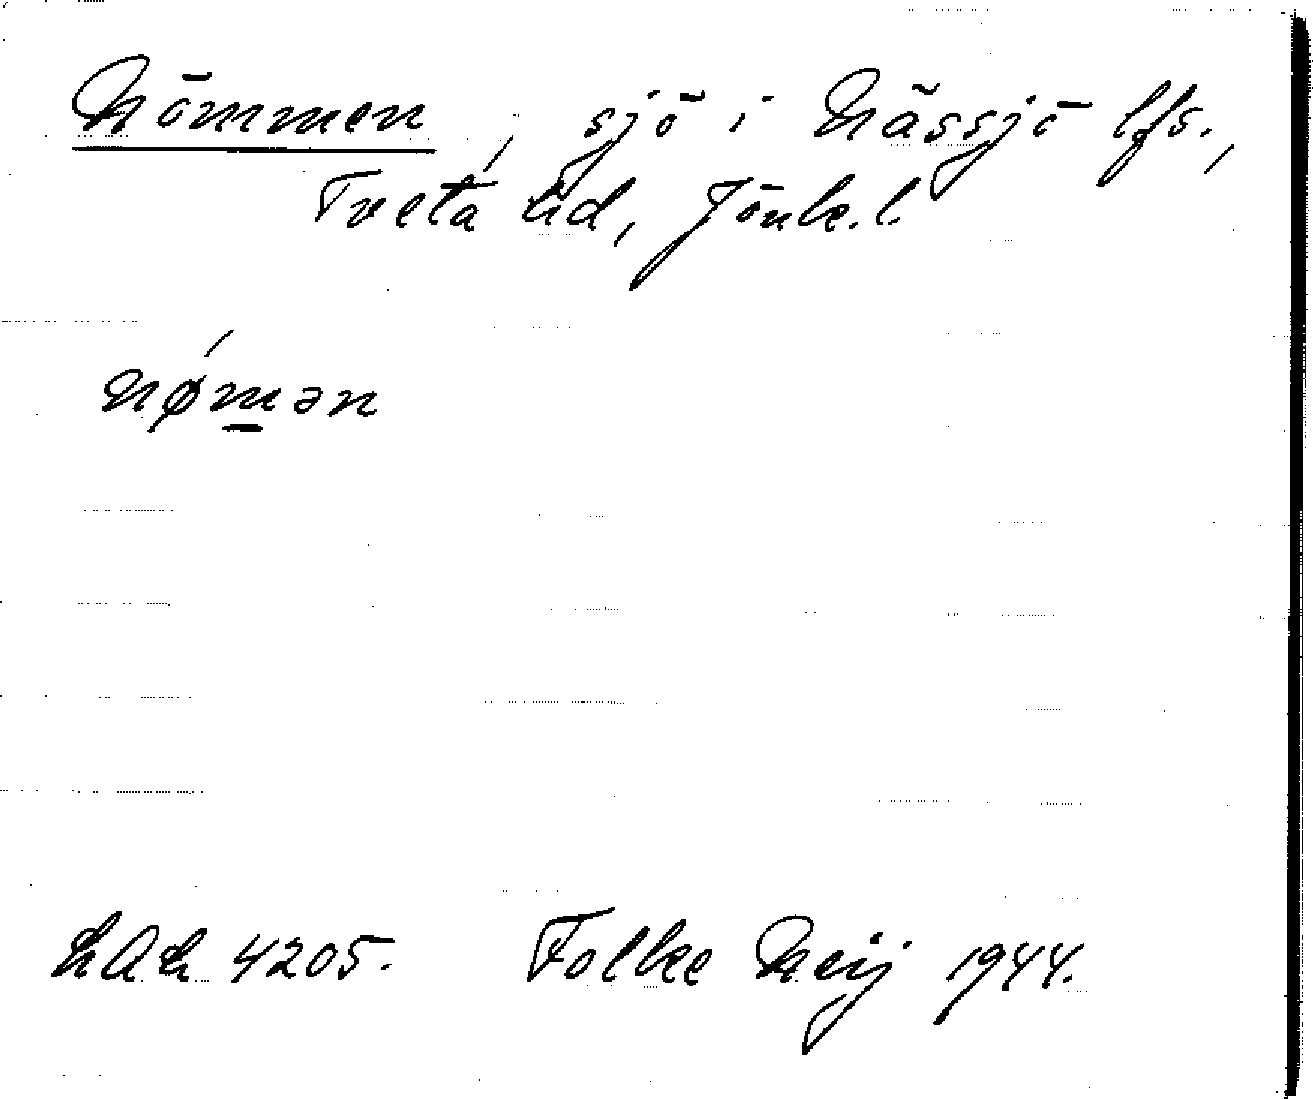 Nömmen, sjö i Nässjö lfs.,
Tveta hd, Jönk. l.
nǿm̲ən
LAL 4205. Folke Neij 1944.